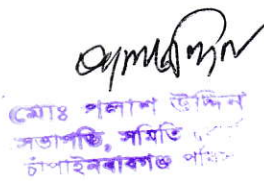 মোঃ পলাশ উদ্দিন
সভাপতি, সমিতি
চাঁপাইনবাবগঞ্জ